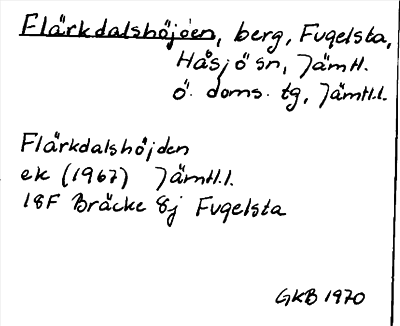 Flärkdalshöjden, berg, Fugelsta,
Håsjö sn, Jämtl.
Ö. doms. tg, Jämtl.l.
Flärkdalshöjden
ek (1967) Jämtl.l.
18F Bräcke 8j Fugelsta
GKB 1970